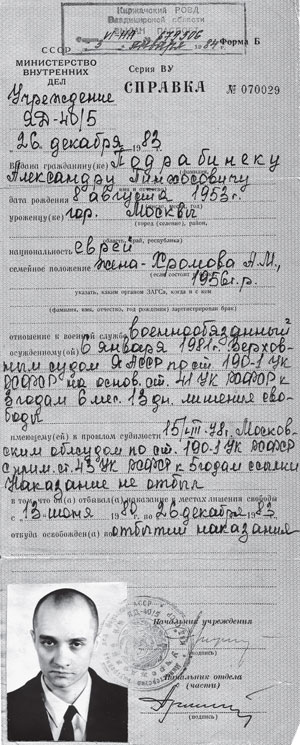 Киржачский РОВД
Владимирской области
VI-НА 678306
3 января 1984
Форма Б
СССР
МИНИСТЕРСТВО
ВНУТРЕННИХ
ДЕЛ
Серия ВУ
СПРАВКА
№ 070029
Учреждение
ЯД-40/5
„26" декабря 1983
Выдана гражданину(ке) Подрабинеку
Александру Пинхосовичу
(фамилия, имя и отчество)
дата рождения 8 августа 1953 г.
уроженцу(ке) гор. Москвы
(город (селение), район,
область, край, республика)
национальность еврей
семейное положение жена-Хромова А.М.,
(если состоит
1956 г.р.
указать, каким органом ЗАГСа, когда и с кем
(фамилия, имя, отчество, год рождения) зарегистрирован брак)
отношение к военной службе военнообязанный
осужденному(ой) 6 января 1981 г. Верхов-
ным судом ЯАССР по ст. 190-1 УК
РСФСР на основ. ст. 41 УК РСФСР к
3 годам 6 мес. 13 дн. лишения сво-
боды
имеющему(ей) в прошлом судимости 15/VIII-78 г. Москов-
ским облсудом по ст. 190-1 УК РСФСР
с прим. ст. 43 УК РСФСР к 5 годам ссылки
Наказание не отбыл
в том что он(а) отбывал(а) наказание в местах лишения свободы
с „13" июня 1980 г. по „26" декабря 1983
откуда освобожден(а) по отбытии наказания
Начальник учреждения
(подпись)
Начальник отдела
(части)
(подпись)